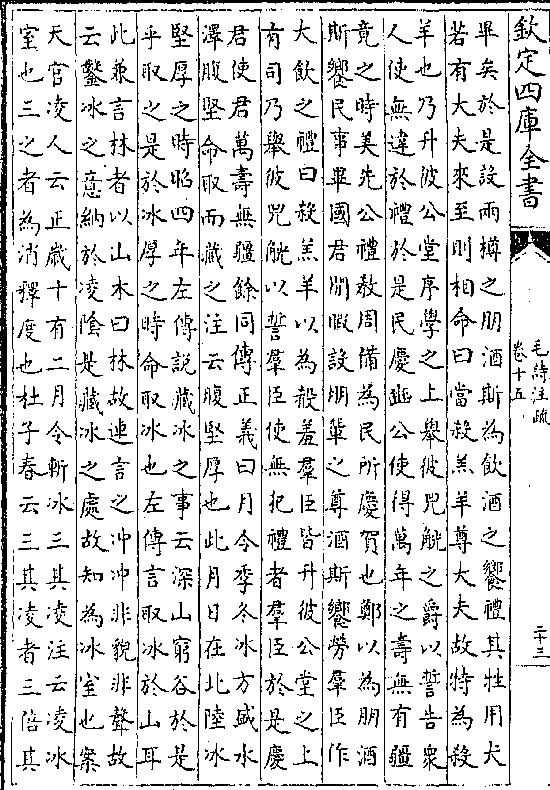 欽定四庫全書
毛詩注疏
卷十五
二十三
畢矣於是設兩樽之朋酒斯為飲酒之饗禮其牲用犬
若有大夫來至則相命曰當殺羔羊尊大夫故特為殺
羊也乃升彼公堂序學之上舉彼兕觥之爵以誓告衆
人使無違於禮於是民慶豳公使得萬年之壽無有疆
竟之時美先公禮教周備為民所慶賀也鄭以為朋酒
斯饗民事畢國君閒暇設朋軰之尊酒斯饗勞羣臣作
大飲之禮曰殺羔羊以為殽羞羣臣皆升彼公堂之上
有司乃舉彼兕觥以誓羣臣使無犯禮者羣臣於是慶
君使君萬壽無疆餘同傳正義曰月令季冬冰方盛水
澤腹堅命取而藏之注云腹堅厚也此月日在北陸冰
堅厚之時昭四年左傳說藏冰之事云深山窮谷於是
乎取之是於冰厚之時命取冰也左傳言取冰於山耳
此兼言林者以山木曰林故連言之沖沖非貌非聲故
云鑿冰之意納於凌陰是藏冰之處故知為冰室也案
天官凌人云正歳十有二月令斬冰三其凌注云凌冰
室也三之者為消釋度也杜子春云三其凌者三倍其